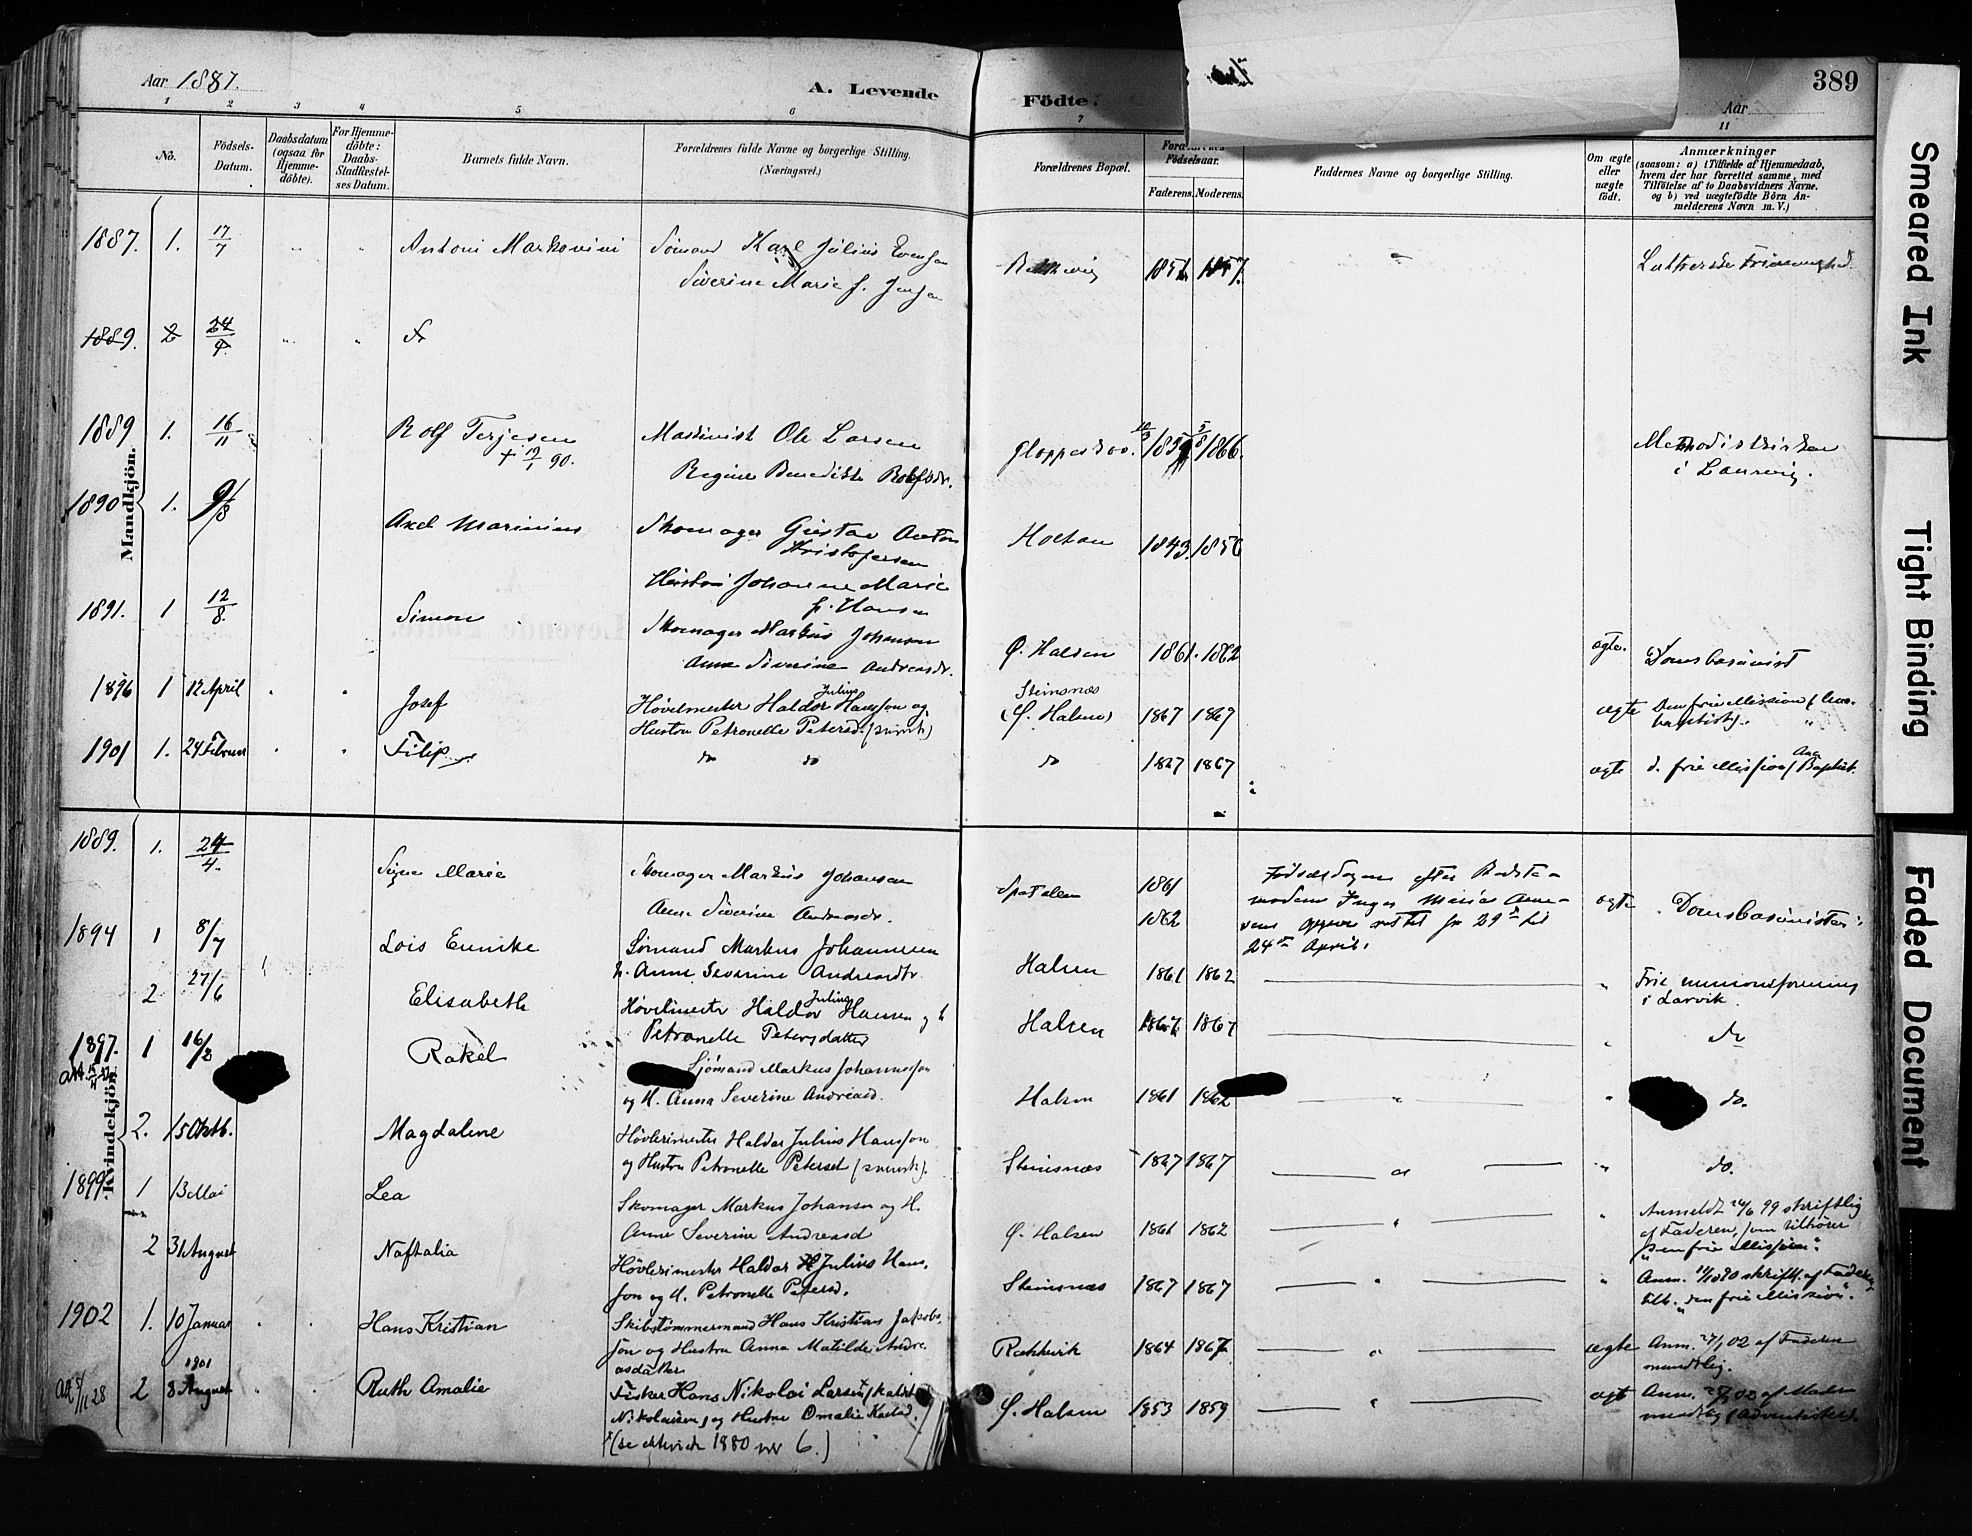 Aar 1887.
A. Levende
Födte.
Aar
389
1 2 3 4 5 6 7 11
No.
Födsels-Datum.
Daabsdatum (ogsaa for Hjemme-döbte).
For Hjemme-döbte: Daabs-Stadfæstel-ses Datum.
Barnets fulde Navn.
Forældrenes fulde Navne og borgerlige Stilling.
(Næringsvei.)
Forældrenes Bopæl.
Forældrenes Födselsaar.
Faderens. Moderens.
Faddernes Navne og borgerlige Stilling.
Om ægte eller uægte födt.
Anmærkninger
(saasom: a) i Tilfælde af Hjemmedaab,
hvem der har forrettet samme, med
Tilföielse af to Daabsvidners Navne,
og b) ved uægtefödte Börn An-
melderens Navn m. V.)
Mandkjön.
1887. 1. 17/7 " " Antoni Sømand Karl Julius Evensen 1857.
Siverine Marie f. Jensen
1889. 2 24/4 " "
1889 1. 16/11 Rolf Terjesen Maskinist Ole Larsen Gloppeskov. 5/8 1866. Methodistkirken
+ 19/1 90. Regine Benedikte Rolfsdr. i Laurvig.
1890 1. 9/8 Axel Marinius Skomager Gustav Anton Holtan 1843. 1850
Kristofersen
Hustru Johanne Marie
f. Hansen
1891. 1 12/8. Simon Skomager Markus Johansen Ø. Halsen 1861. 1862 ægte.
Anne Siverine Andreasdr.
1896 1 12 April " " Josef Høvelmester Haldor Julius Hansson og Steinsnæs (Ø. Halsen) 1867 1867 ægte Den frie Mission (Ana-
Hustru Petronelle Petersd. (svensk) baptist). "
1901 1. 24 Februar " " Filip do do do 1867 1867 ægte d. frie Mission (Ana Baptist.
Kvindekjön.
1889. 1. 24/4. Signe Marie Skomager Markus Johansen 1861 Fødselsdagen efter
Anne Siverine Andreasdr. 1862 ægte
24de April.
1894 1 8/7 Lois Eunike Sømand Markus Johannesen Halsen 1861 1862 " Frie missionsforening
h. Anne Severine Andreasdtr. i Larvik.
2 27/6 Elisabeth Høvelmester Haldor Julius Hansen og h Halsen 1867 1867 " do
Petronelle Petersdatter
1897. 1 16/2 Rakel Sjømand Markus Johannesson Halsen 1861 1862 " " do.
og H. Anna Severine Andreasd.
2. 15 Oktb. Magdalene Høvlerimester Haldor Julius Hansson Steinsnæs 1867 1867 " do.
og Hustru Petronelle Petersd. (svensk).
1899. 1 13 Mai Lea Skomager Markus Johansen og H. Ø. Halsen 1861 1862 " " Anmeldt 24/6 99 skriftlig
Anne Severine Andreasd af Faderen, som tilhører
"den frie Mission".
2 31 August Naftalia Høvlerimester Haldor Julius Hans- Steinsnæs 1867 1867 " " skriftl. af Faderen
son og H. Petronelle Petersd. tilh. "den frie Mission".
1902 1. 10 Januar " " Hans Kristian Skibstømmermand Hans Kristian Jakobs- Rækkvik 1864 1867 " ægte Anm. 27/1 02 af Faderen
son og Hustru Anna Matilde Andre- mundtlig.
asdatter
2 8 August 1901 " " Ruth Amalie Fisker Hans Nikolai Larsen (kaldt Ø. Halsen 1853 1859 " ægt
Nikolaisen) og Hustru Omalie Karlsd. mundtlig (Adventister).
(se 1880 nr 6.)
Smeared Ink
Tight Binding
Faded Document